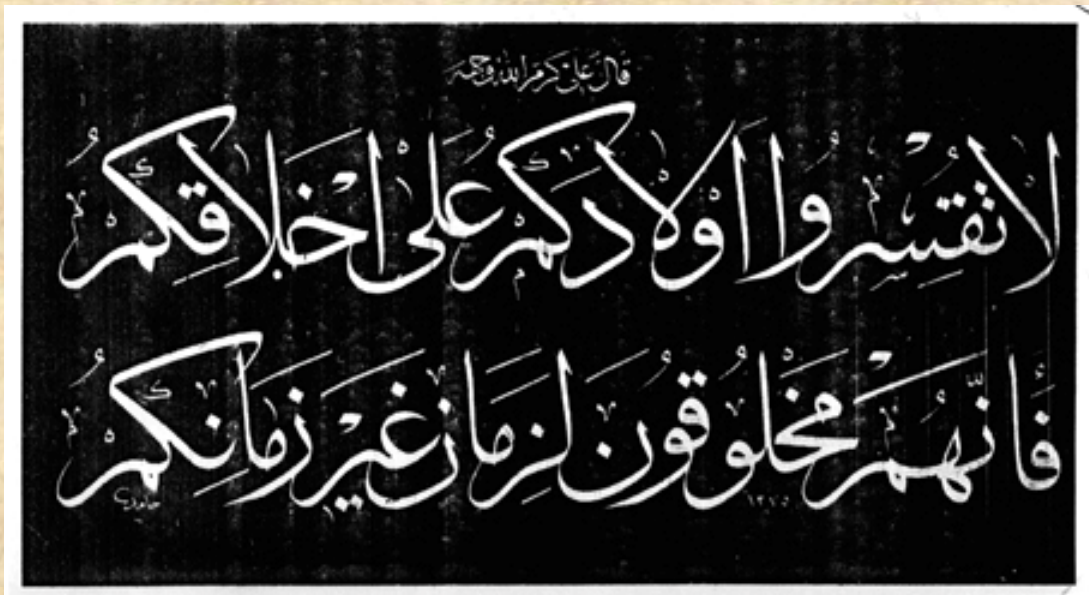 قال علي كرم الله وجهه
لا تقسروا اولادكم على اخلاقكم
فانهم مخلوقون لزمان غير زمانكم
١٣٧٥